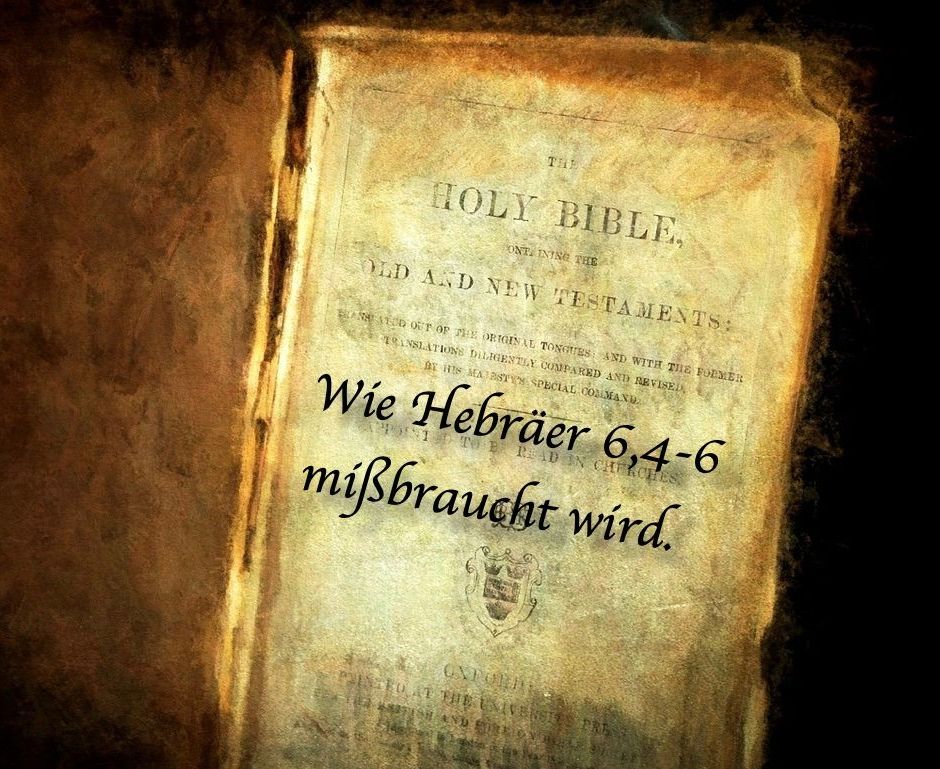 THE
HOLY BIBLE,
CONTAINING THE
OLD AND NEW TESTAMENTS:
TRANSLATED OUT OF THE ORIGINAL TONGUES; AND WITH THE FORMER
TRANSLATIONS DILIGENTLY COMPARED AND REVISED,
BY HIS MAJESTY'S SPECIAL COMMAND.
Wie Hebräer 6,4-6
APPOINTED TO BE READ IN CHURCHES.
mißbraucht wird.
OXFORD:
PRINTED AT THE UNIVERSITY PRESS
BRITISH AND FOREIGN BIBLE